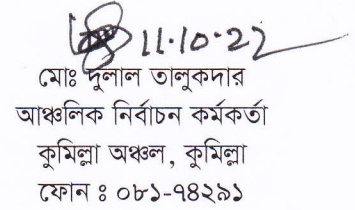 11.10.22
মোঃ দুলাল তালুকদার
আঞ্চলিক নির্বাচন কর্মকর্তা
কুমিল্লা অঞ্চল, কুমিল্লা
ফোন ঃ ০৮১-৭৪২৯১